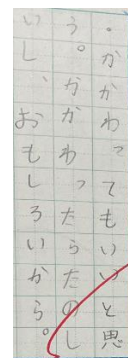 ・かかわってもいいと思
う。かかわったらたのし
いし、おもしろいから。